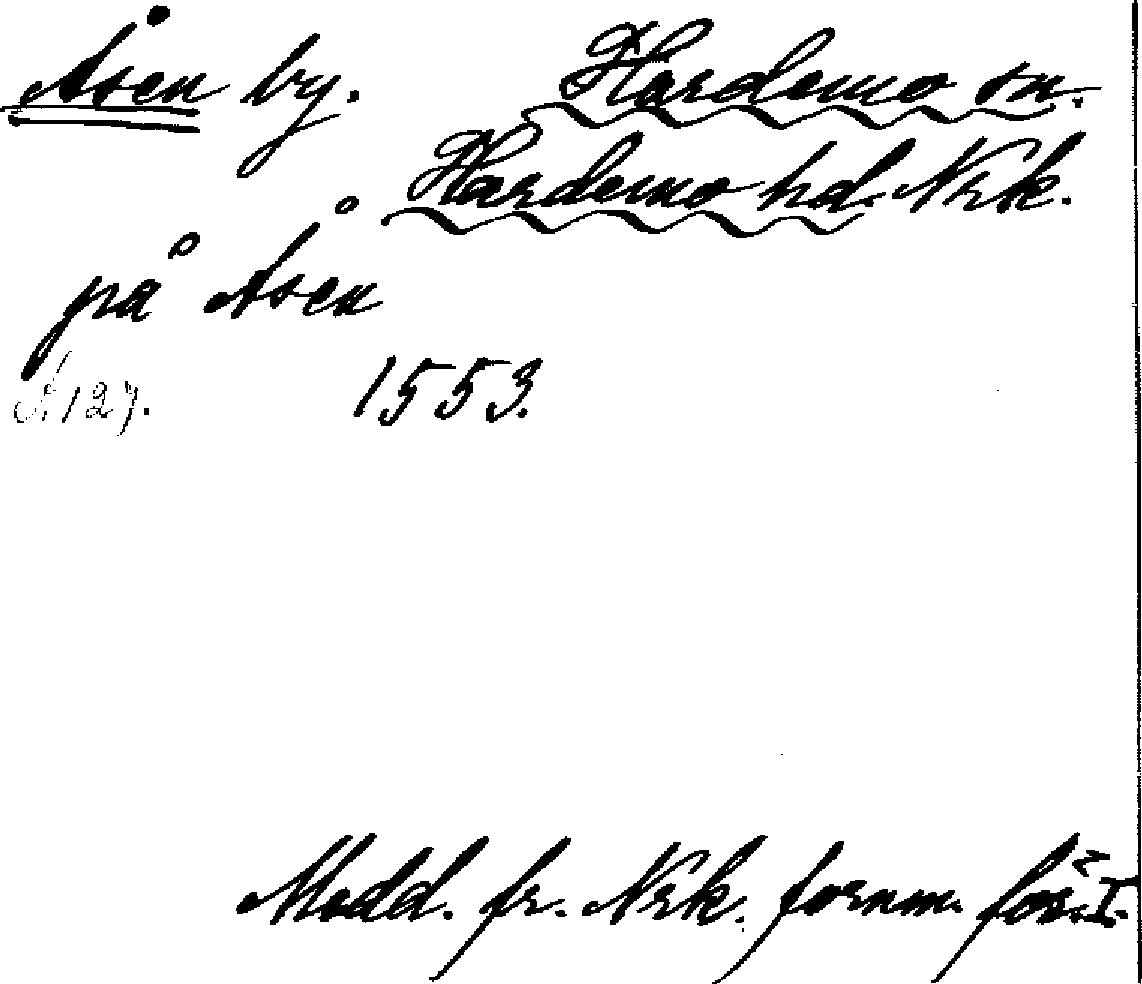 Åsen by. Hardemo sn.
Hardemo hd. Nrk.
på Åsen
s. 127. 1553.
Medd. fr. Nrk. fornm. för. I.